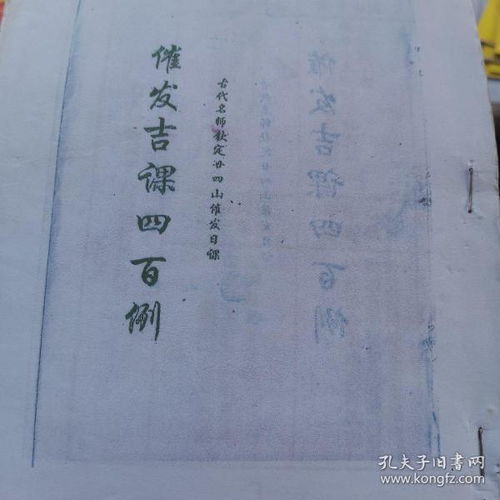 古代名师钦定廿四山催发日课
催发吉课四百例
孔夫子旧书网
kongfz.com